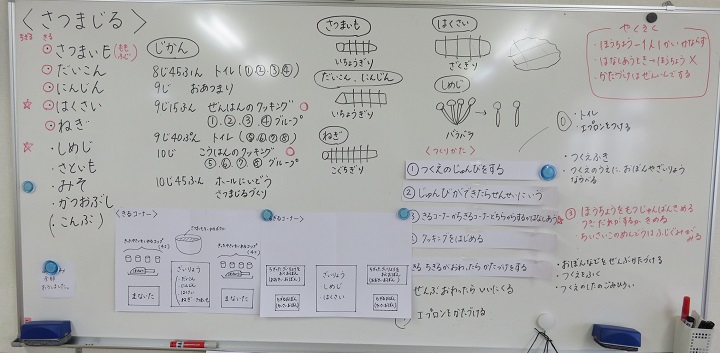 〈さつまじる〉
ちぎる きる
さつまいも
だいこん
にんじん
はくさい
ねぎ
しめじ
さといも
みそ
かつおぶし
(こんぶ)
じかん
8じ45ふん トイレ(①.②.③.④)
9じ おあつまり
9じ15ふん ぜんはんのクッキング
①.②.③.④グループ
9じ40ぷん トイレ(⑤.⑥.⑦.⑧)
10じ こうはんのクッキング
⑤.⑥.⑦.⑧グループ
10じ45ふん ホールにいどう
さつまじるづくり
さつまいも
いちょうぎり
だいこん、にんじん
いちょうぎり
ねぎ
こぐちぎり
はくさい
ざくぎり
しめじ
バラバラ
やくそく
・ほうちょう→1人1かいかならず
・はなしあうとき→ほうちょう×
・かたづけはぜんいんでする
〈つくりかた〉
①つくえのじゅんびをする
②じゅんびができたらせんせいにいう
③きるコーナーからきるコーナーどちらからするかはなしあう
クッキングをはじめる
きる ちぎるがおわったら かたづけをする
ぜんぶおわったら いいにくる
エプロンをかたづける
・トイレ
・エプロンをつける
・つくえふき
・つくえのうえに おぼんやざいりょう
ならべる
③ほうちょうをもつじゅんばんきめる
つぎだれがするかきめる
・おぼんなどをぜんぶかたづける
・つくえをふく
・つくえのしたのごみひろい
〈きるコーナー〉
ざいりょう
だいこん
にんじん
はくさい
ねぎ
まないた
まないた
ざいりょう
しめじ
はくさい